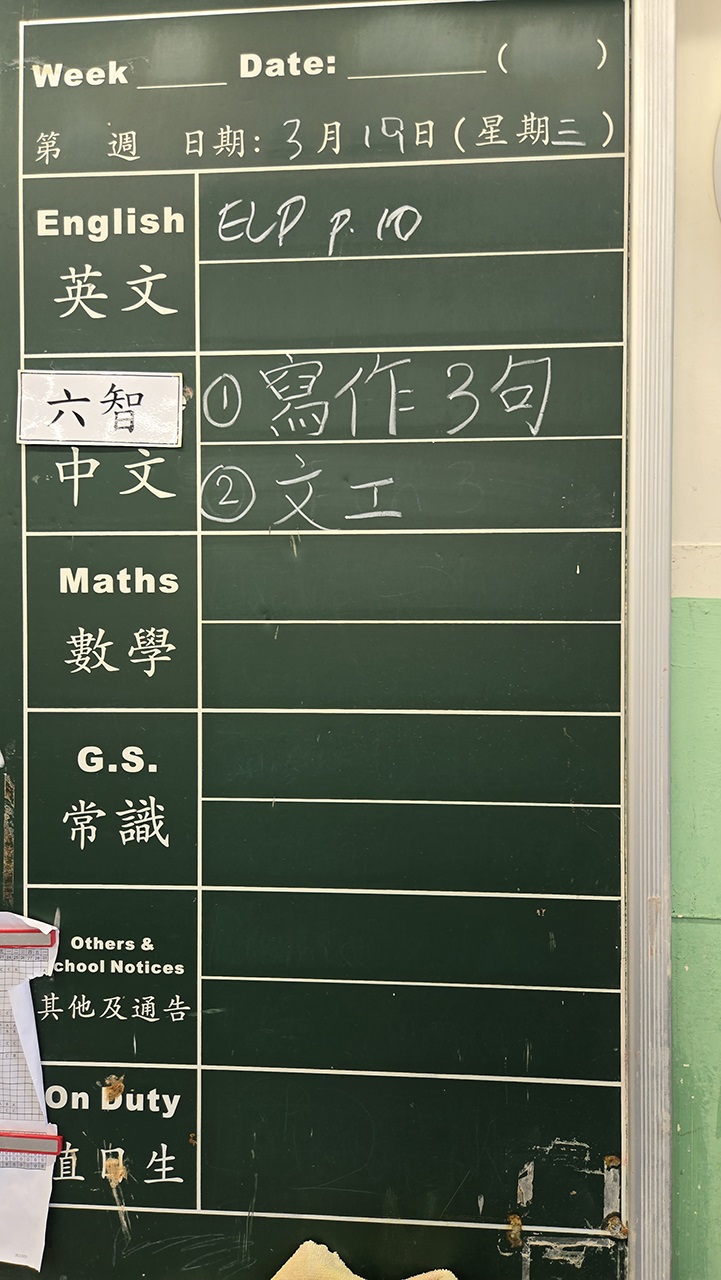 Week ____ Date: ________ ( )
第 週 日期: 3月19日 (星期三)
English
ELP p. 10
英文
六智
① 寫作3句
中文
② 文工
Maths
數學
G.S.
常識
Others &
chool Notices
其他及通告
On Duty
值日生